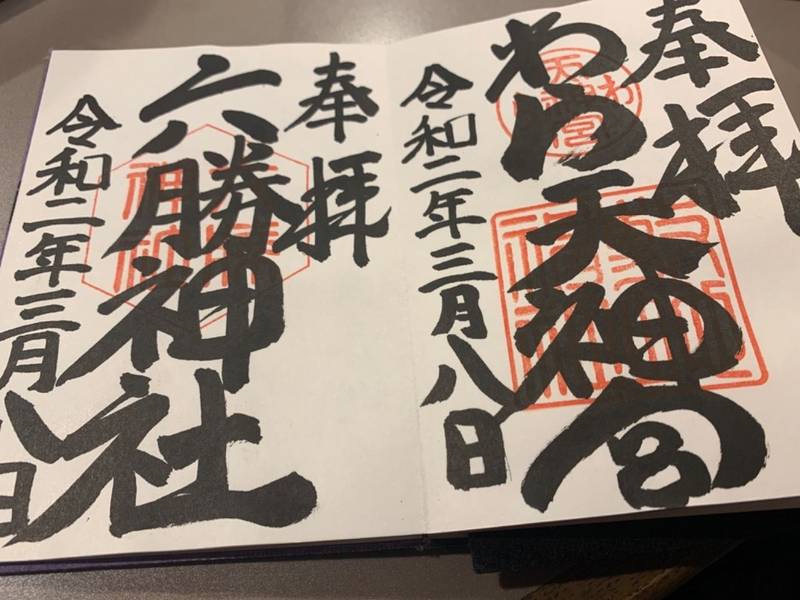 奉拝
わら天神宮
令和二年三月八日
奉拝
六勝神社
令和二年三月八日